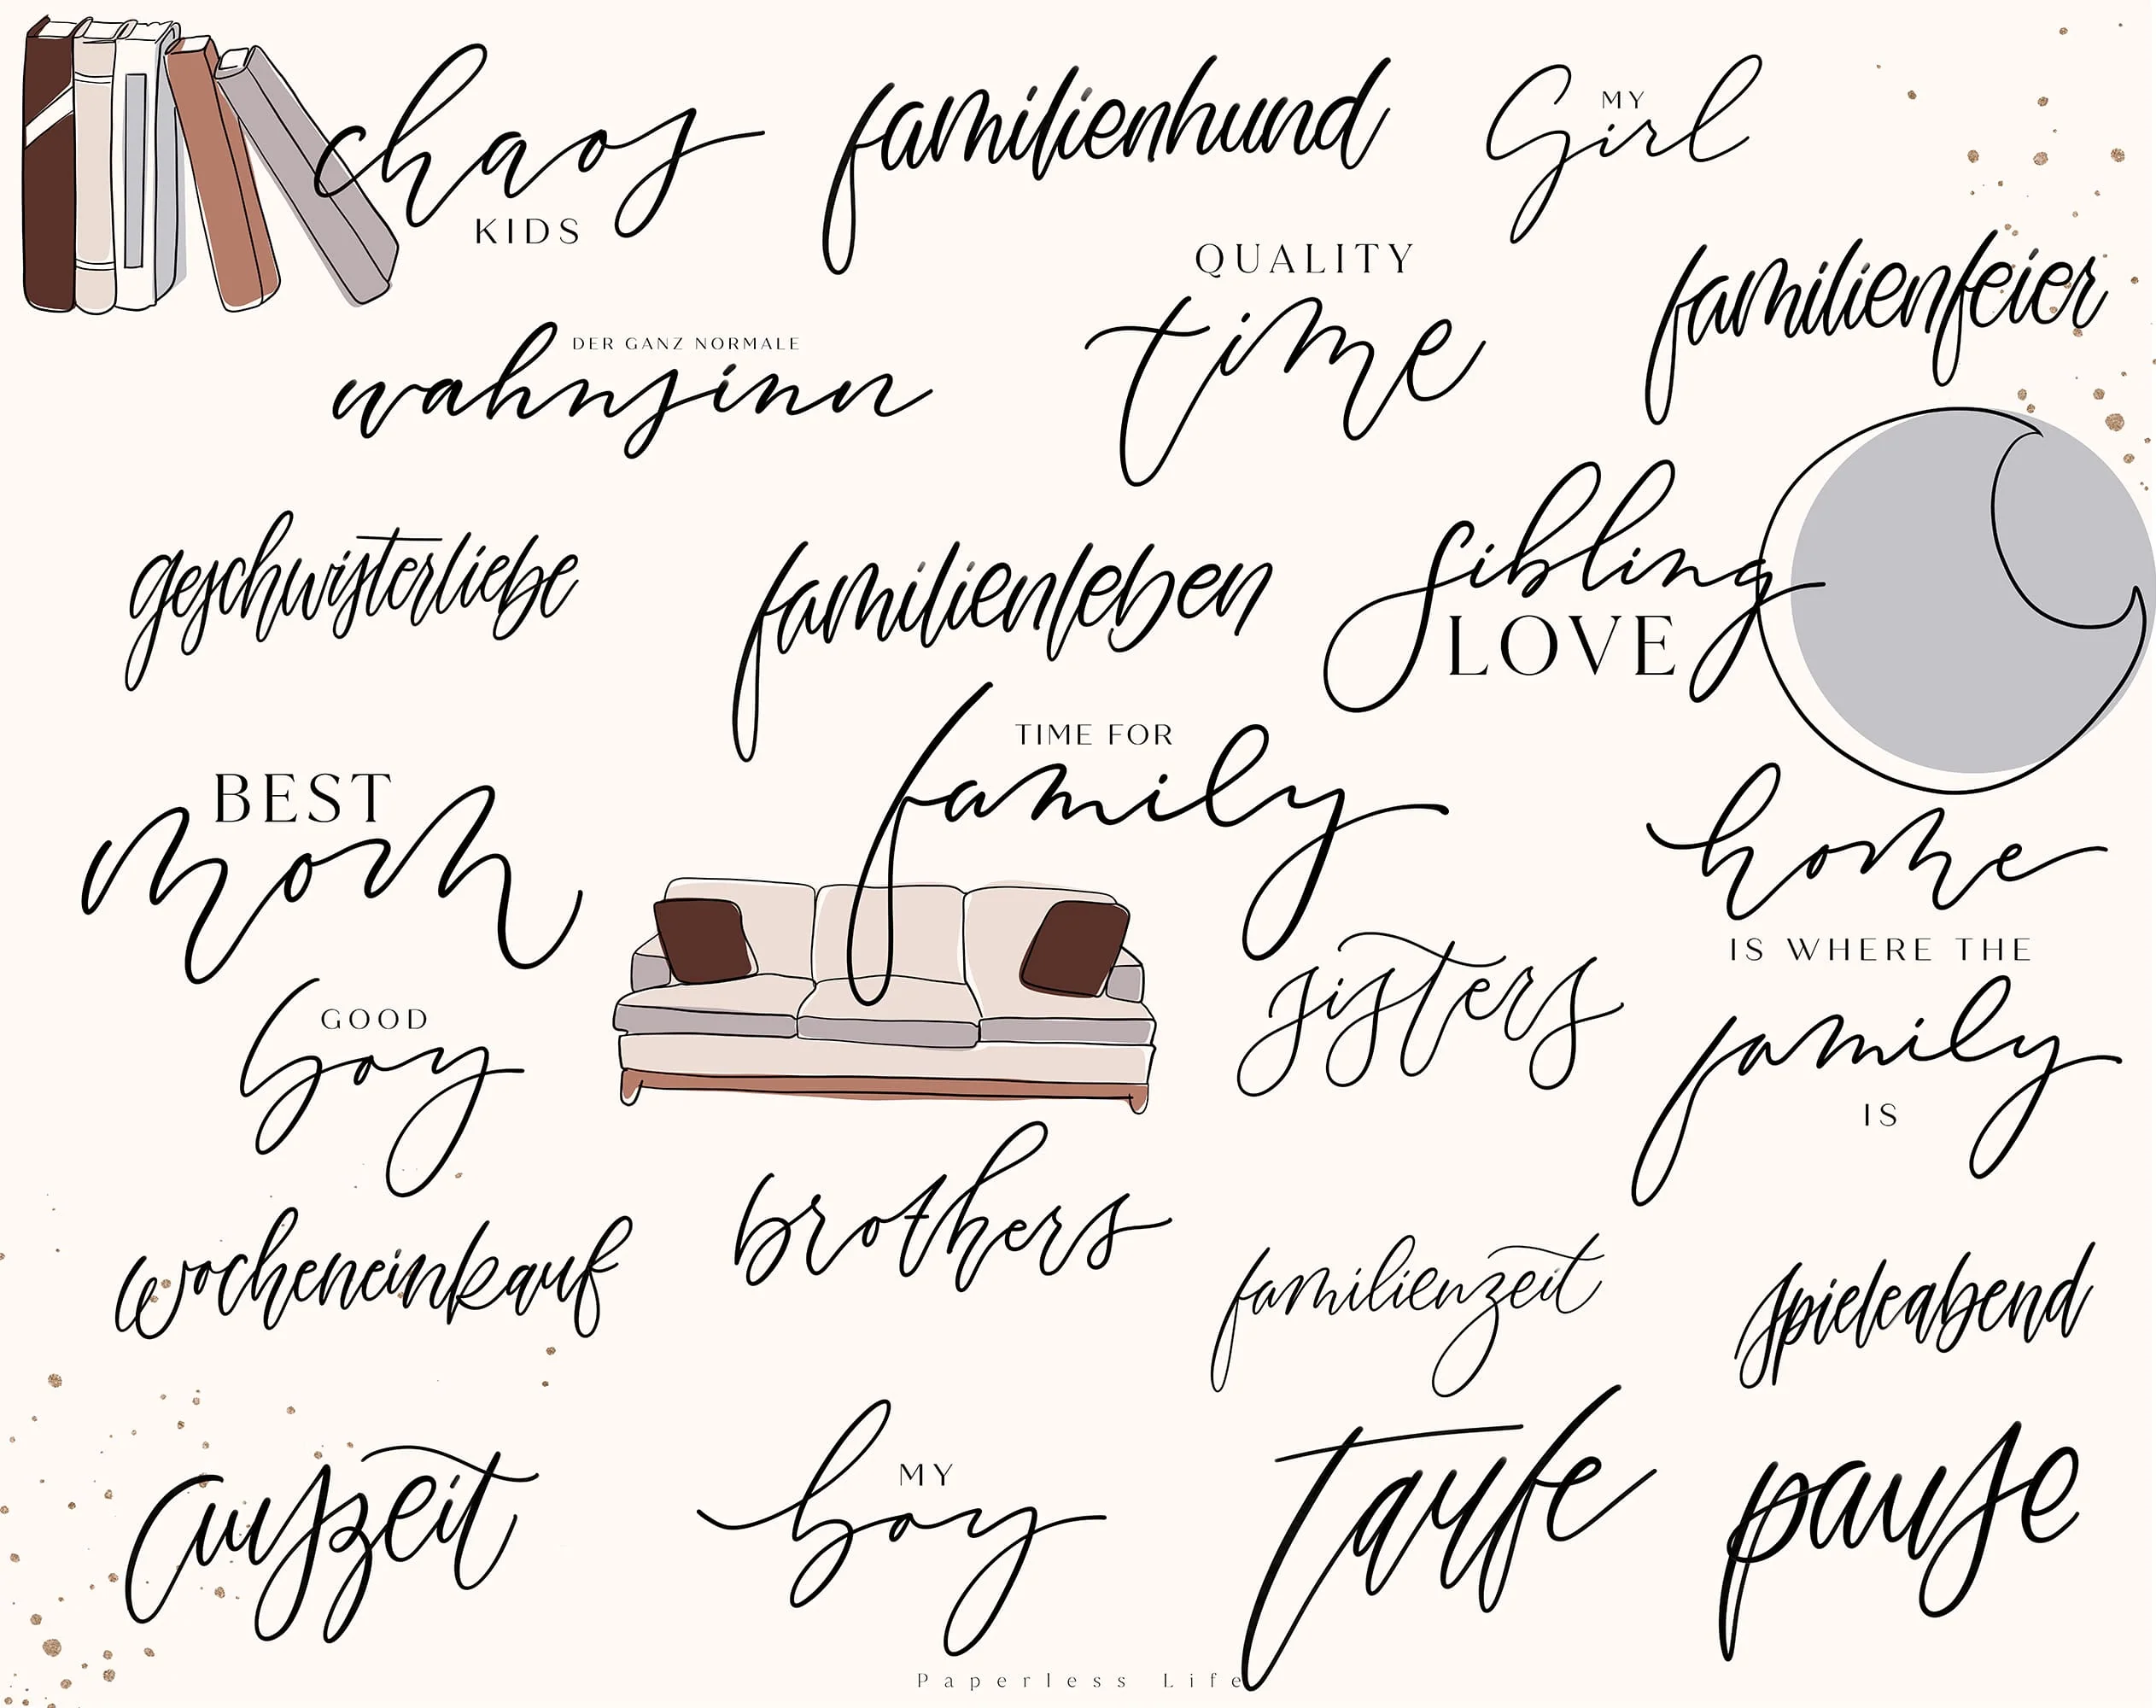 chaos
KIDS
familienhund
MY
Girl
QUALITY
time
familienfeier
DER GANZ NORMALE
wahnsinn
geschwisterliebe
familienleben
sibling
LOVE
BEST
mom
TIME FOR
family
home
IS WHERE THE
family
IS
GOOD
boy
sisters
wocheneinkauf
brothers
familienzeit
spieleabend
auszeit
MY
boy
taufe
pause
Paperless Life